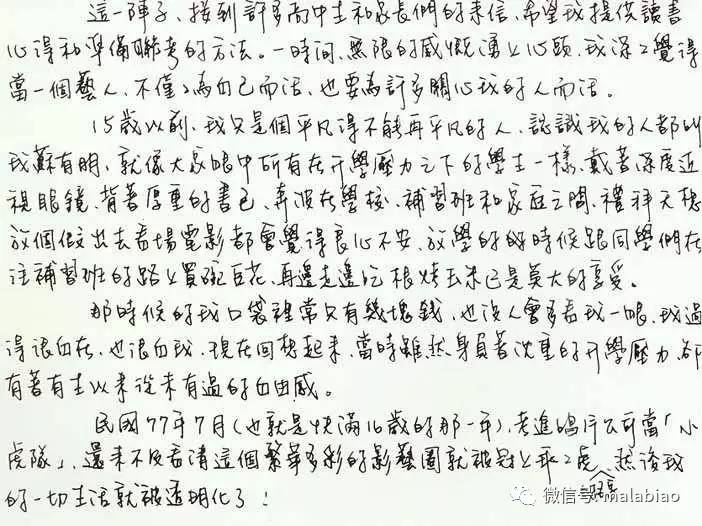 這一陣子,接到許多高中生和家長們的來信,希望我提供讀書
心得和準備聯考的方法。一時間,無限的感慨湧上心頭,我深深覺得
當一個藝人,不僅僅為自己而活,也要為許多關心我的人而活。
15歲以前,我只是個平凡得不能再平凡的人,認識我的人都叫
我蘇有朋,就像大家眼中所有在升學壓力之下的學生一樣,戴著深度近
視眼鏡、背著厚重的書包、奔波在學校、補習班和家庭之間,禮拜天想
放個假出去看場電影都會覺得良心不安,放學的的時候跟同學們在
往補習班的路上買碗豆花、再邊走邊吃根烤玉米已是莫大的享受。
那時候的我口袋裡常只有幾塊錢,也沒人會多看我一眼,我過
得很自在,也很自我,現在回想起來,當時雖然身負著沈重的升學壓力,却
有著有生以來從未有過的自由感。
民國77年7月(也就是快滿16歲的那一年),考進唱片公司當「小
虎隊」,還來不及看清這個繁華多彩的影藝圈就被冠上乖乖虎,然後我
的一切生活就被透明化了!
微信号: malabiao